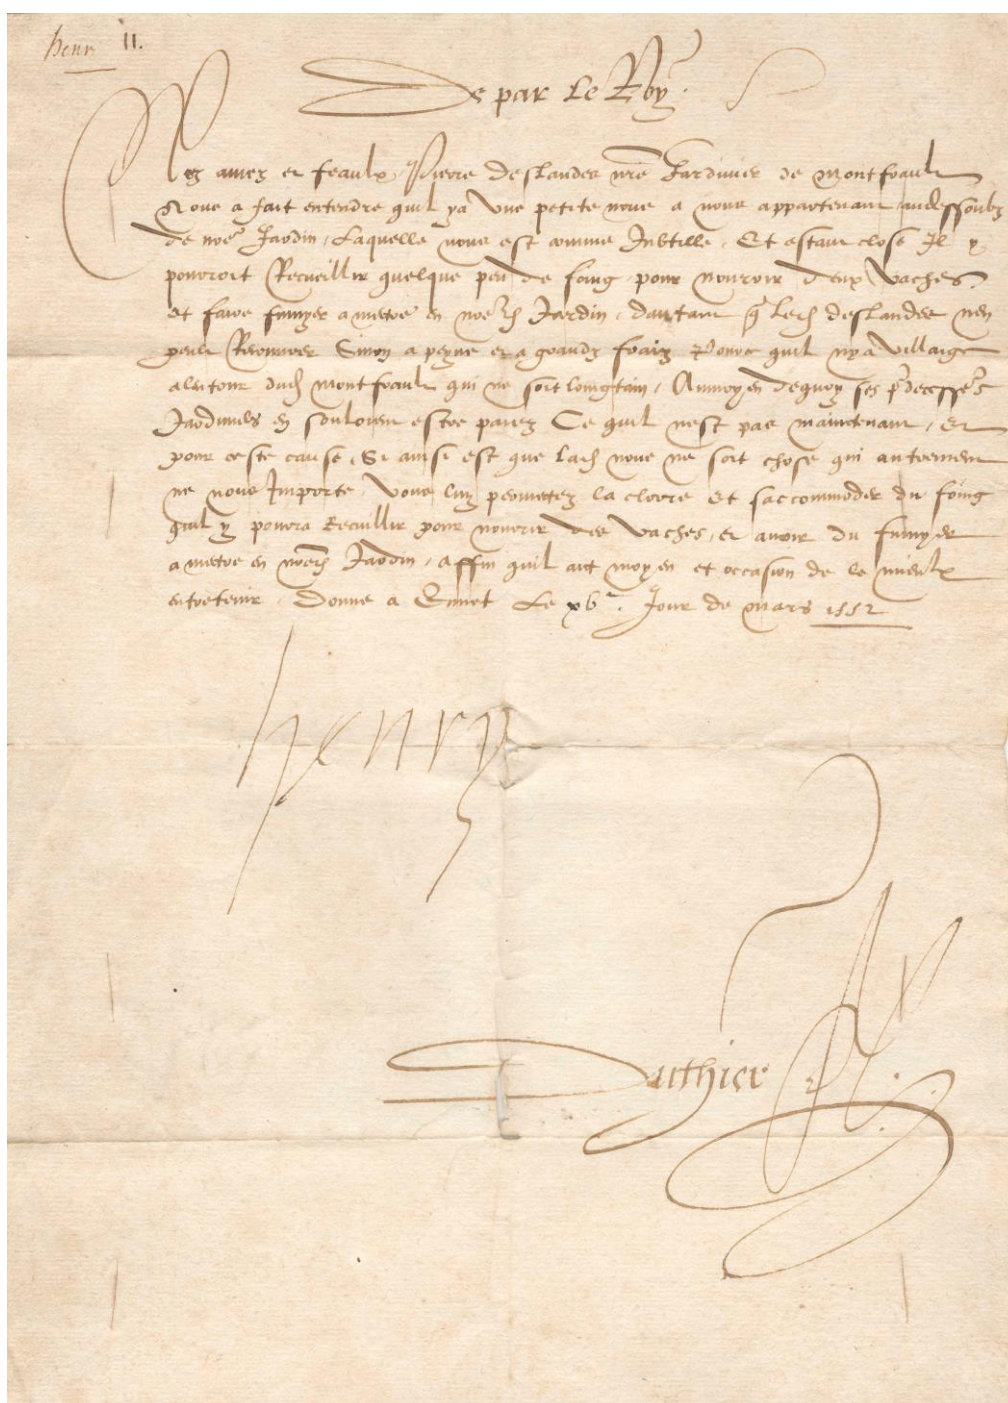 henr II.
De par le Roy
Noz amez et feaulx, Pierre Deslandes nre Jardinier de Montfrault
Nous a fait entendre quil ya une petite noue a nous appartenant audessoubz
de nore Jardin, Laquelle nous est comme Inutille, Et estant close Il y
pourroit Recueillir quelque peu de foing pour nourrir deux vaches
et faire fumyer a mectre en nored Jardin, dautant q led deslandes nen
peult Recouvrer Sinon a peyne et a grandz fraiz Pource quil nya villaige
alentour dud montfrault qui ne soit loingtain, Aumoyen dequoy ses pdecessrs
Jardiniers en souloient estre paiez Ce quil nest pas maintenant, Et
pour ceste cause, Si ainsi est que lad noue ne soit chose qui autrement
ne nous Importe, Vous luy permectez la clorre et saccommoder du foing
quil y pourra Recuillir pour nourrir des vaches, et avoir du fumyer
a mectre en nored Jardin, affin quil ait moyen et occasion de le mieulx
entretenir. Donne a Ennet Le xve. Jour de mars 1552
henry
Duthier